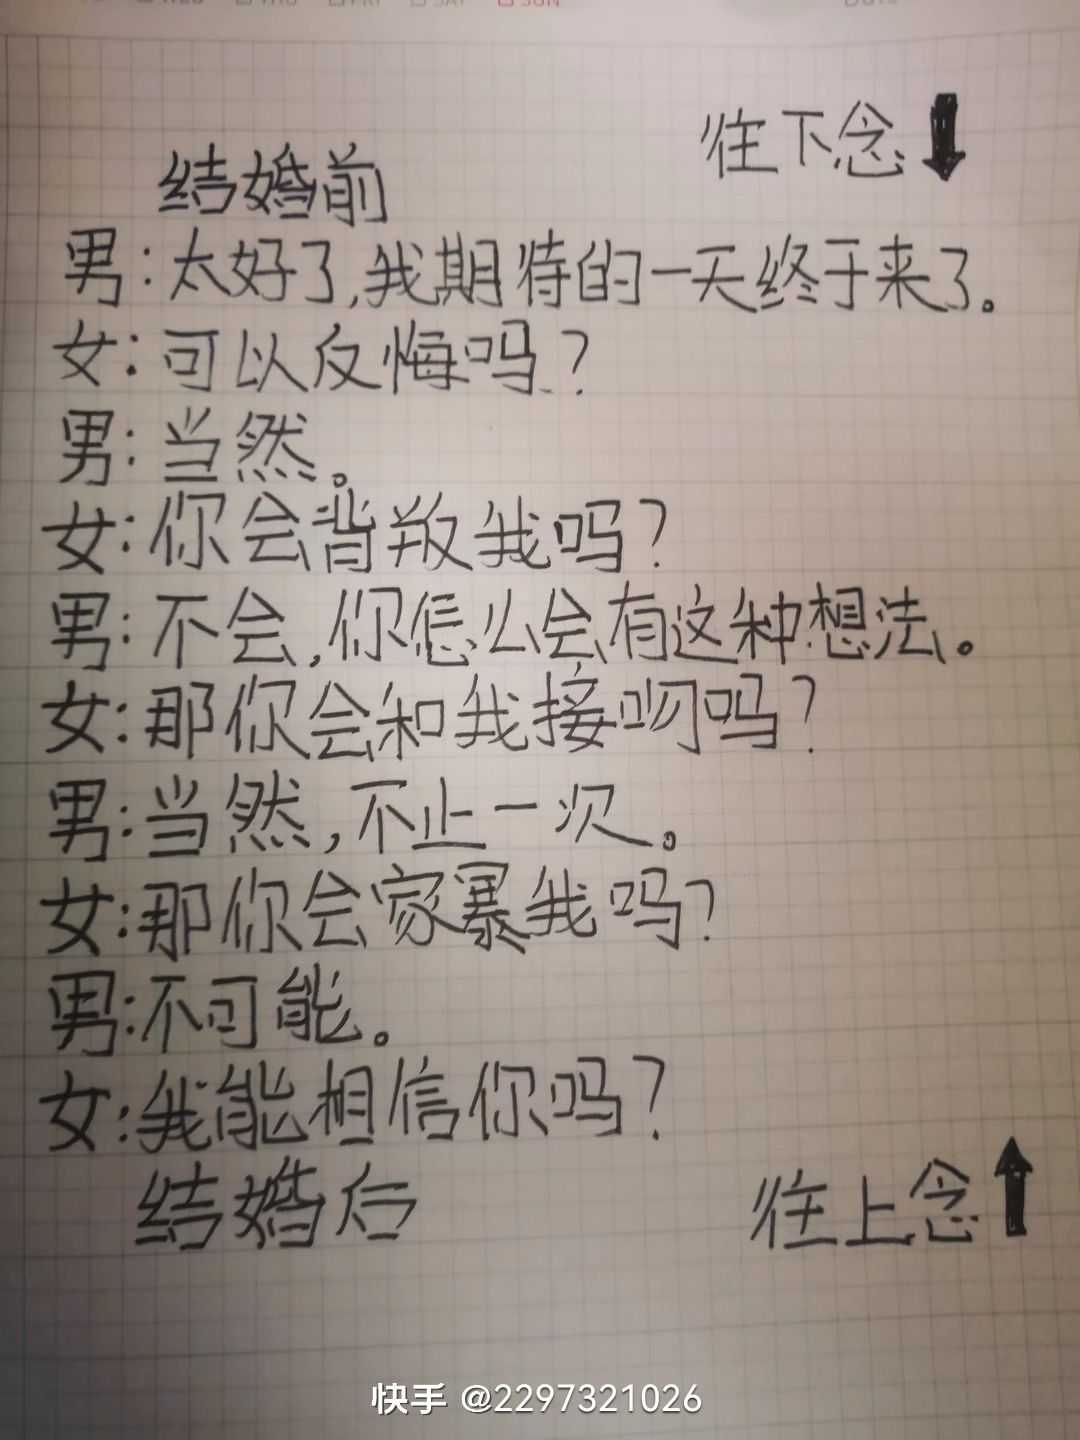 WED THU FRI SAT SUN Date
往下念
结婚前
男:太好了,我期待的一天终于来了。
女:可以反悔吗?
男:当然。
女:你会背叛我吗?
男:不会,你怎么会有这种想法。
女:那你会和我接吻吗?
男:当然,不止一次。
女:那你会家暴我吗?
男:不可能。
女:我能相信你吗?
结婚后
往上念
快手 @2297321026